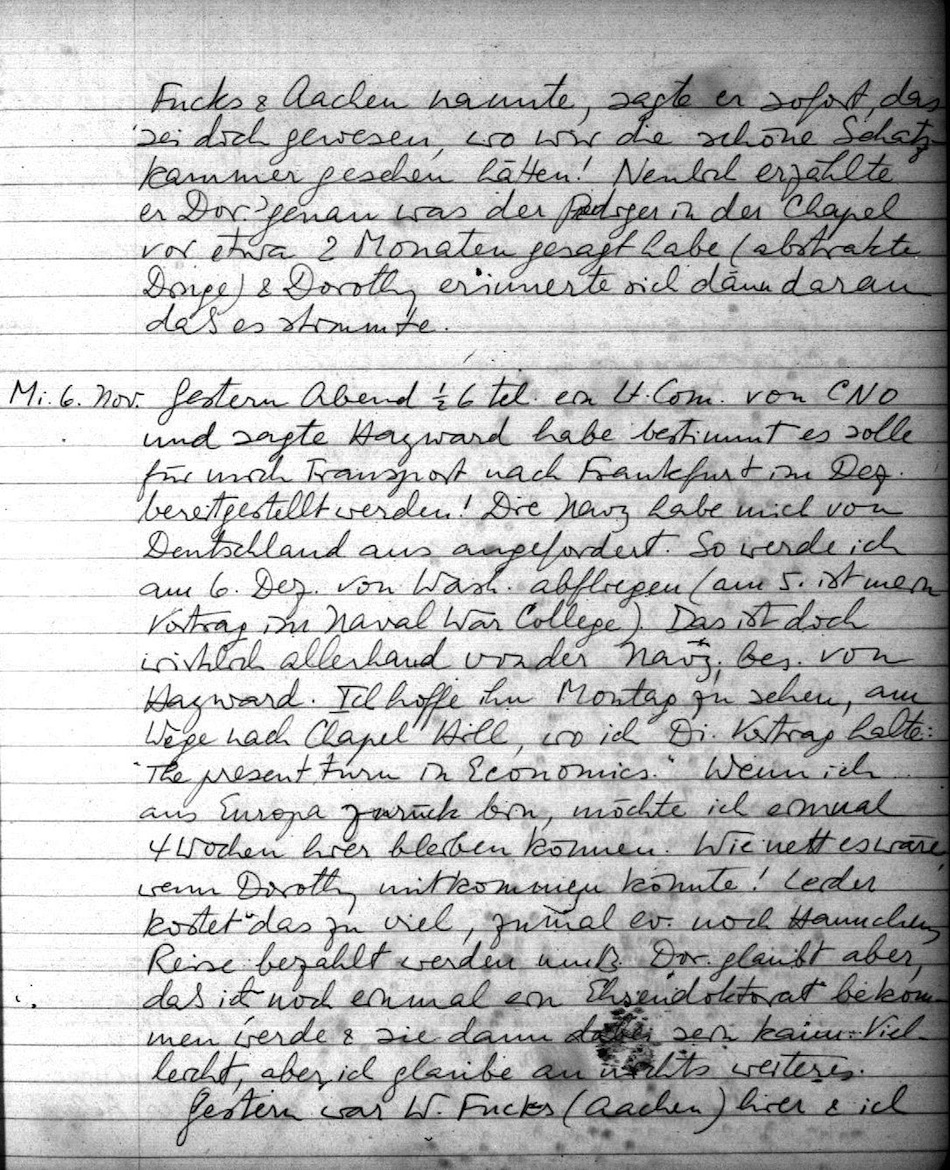 Fucks & Aachen nannte, sagte er sofort, das
sei doch gewesen, wo wir die schöne Schatz-
kammer gesehen hätten! Neulich erzählte
er Dor. genau was der Prediger in der Chapel
vor etwa 2 Monaten gesagt habe (abstrakte
Dinge) & Dorothy erinnerte sich dann daran
daß es stimmte.
Mi. 6. Nov. Gestern Abend ½ 6 tel. ein Lt. Com. von CNO
und sagte Hayward habe bestimmt es solle
für mich Transport nach Frankfurt im Dez.
bereitgestellt werden! Die Navy habe mich von
Deutschland aus angefordert. So werde ich
am 6. Dez. von Wash. abfliegen (am 5. ist mein
Vortrag im Naval War College). Das ist doch
wirklich allerhand von der Navy, bes. von
Hayward. Ich hoffe ihn Montag zu sehen, am
Wege nach Chapel Hill, wo ich Di. Vortrag halte:
"The present turn in Economics." Wenn ich
aus Europa zurück bin, möchte ich einmal
4 Wochen hier bleiben können. Wie nett es wäre,
wenn Dorothy mitkommen könnte! Leider
kostet das zu viel, zumal ev. noch Hannchens
Reise bezahlt werden muß. Dor. glaubt aber,
daß ich noch einmal ein Ehrendoktorat bekom
men werde & sie dann dabei sein kann. Viel-
leicht, aber ich glaube an nichts weiteres.
Gestern war W. Fucks (Aachen) hier & ich